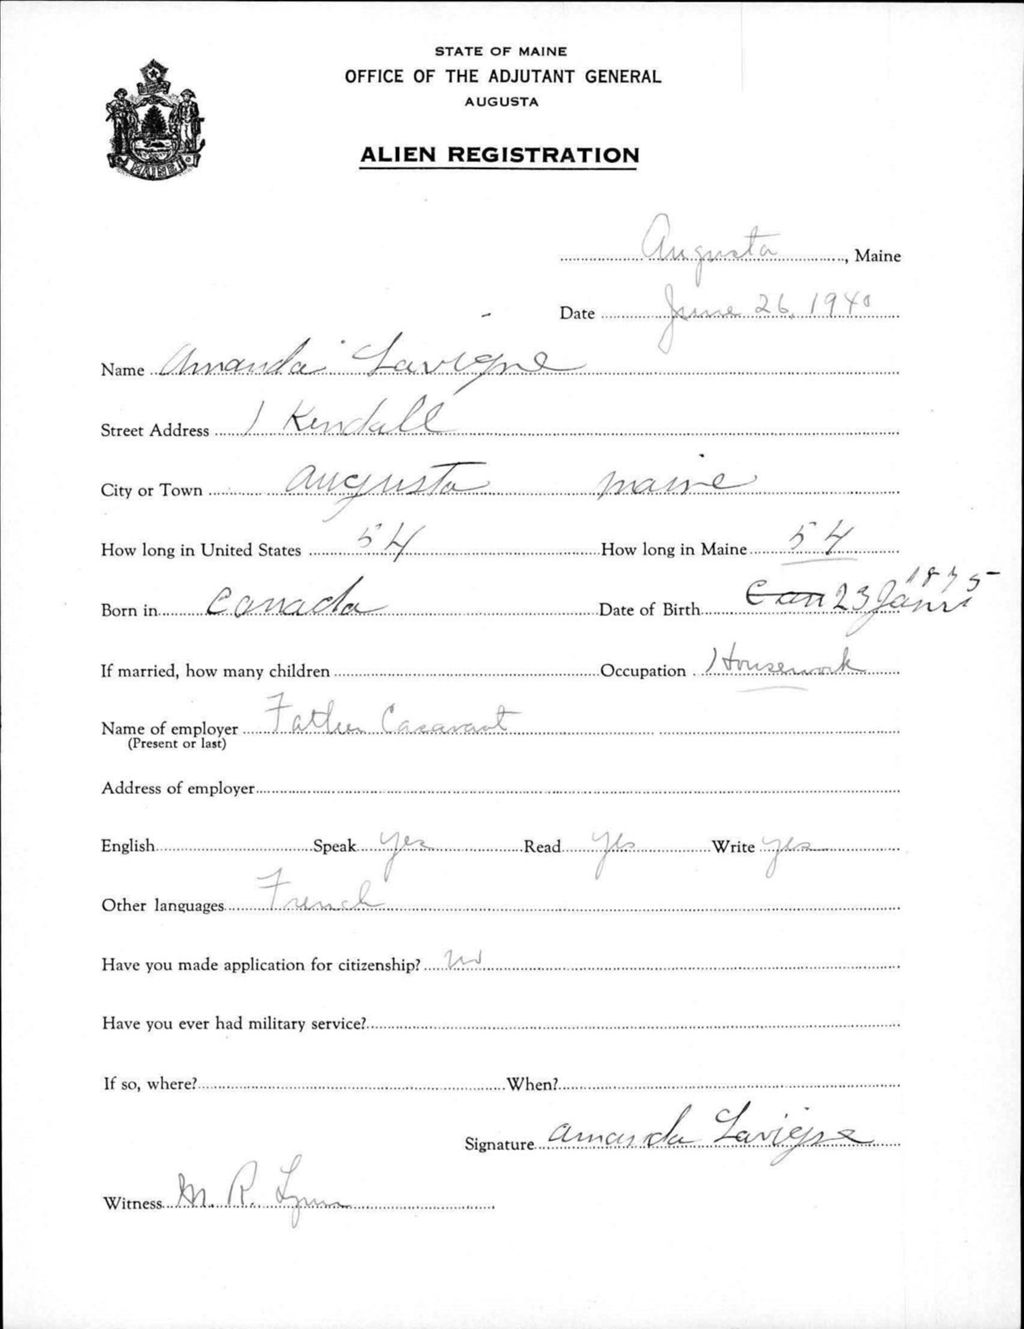 STATE OF MAINE
OFFICE OF THE ADJUTANT GENERAL
AUGUSTA
ALIEN REGISTRATION
MAINE
Augusta, Maine
Date June 26, 1940
Name Amanda Lavigne
Street Address 1 Kendall
City or Town Augusta Maine
How long in United States 54 How long in Maine 54
Born in Canada Date of Birth 23 1875
If married, how many children Occupation Housework
Name of employer Father Casavant
(Present or last)
Address of employer
English Speak yes Read yes Write yes
Other languages French
Have you made application for citizenship? no
Have you ever had military service?
If so, where? When?
Signature Amanda Lavigne
Witness M. R.